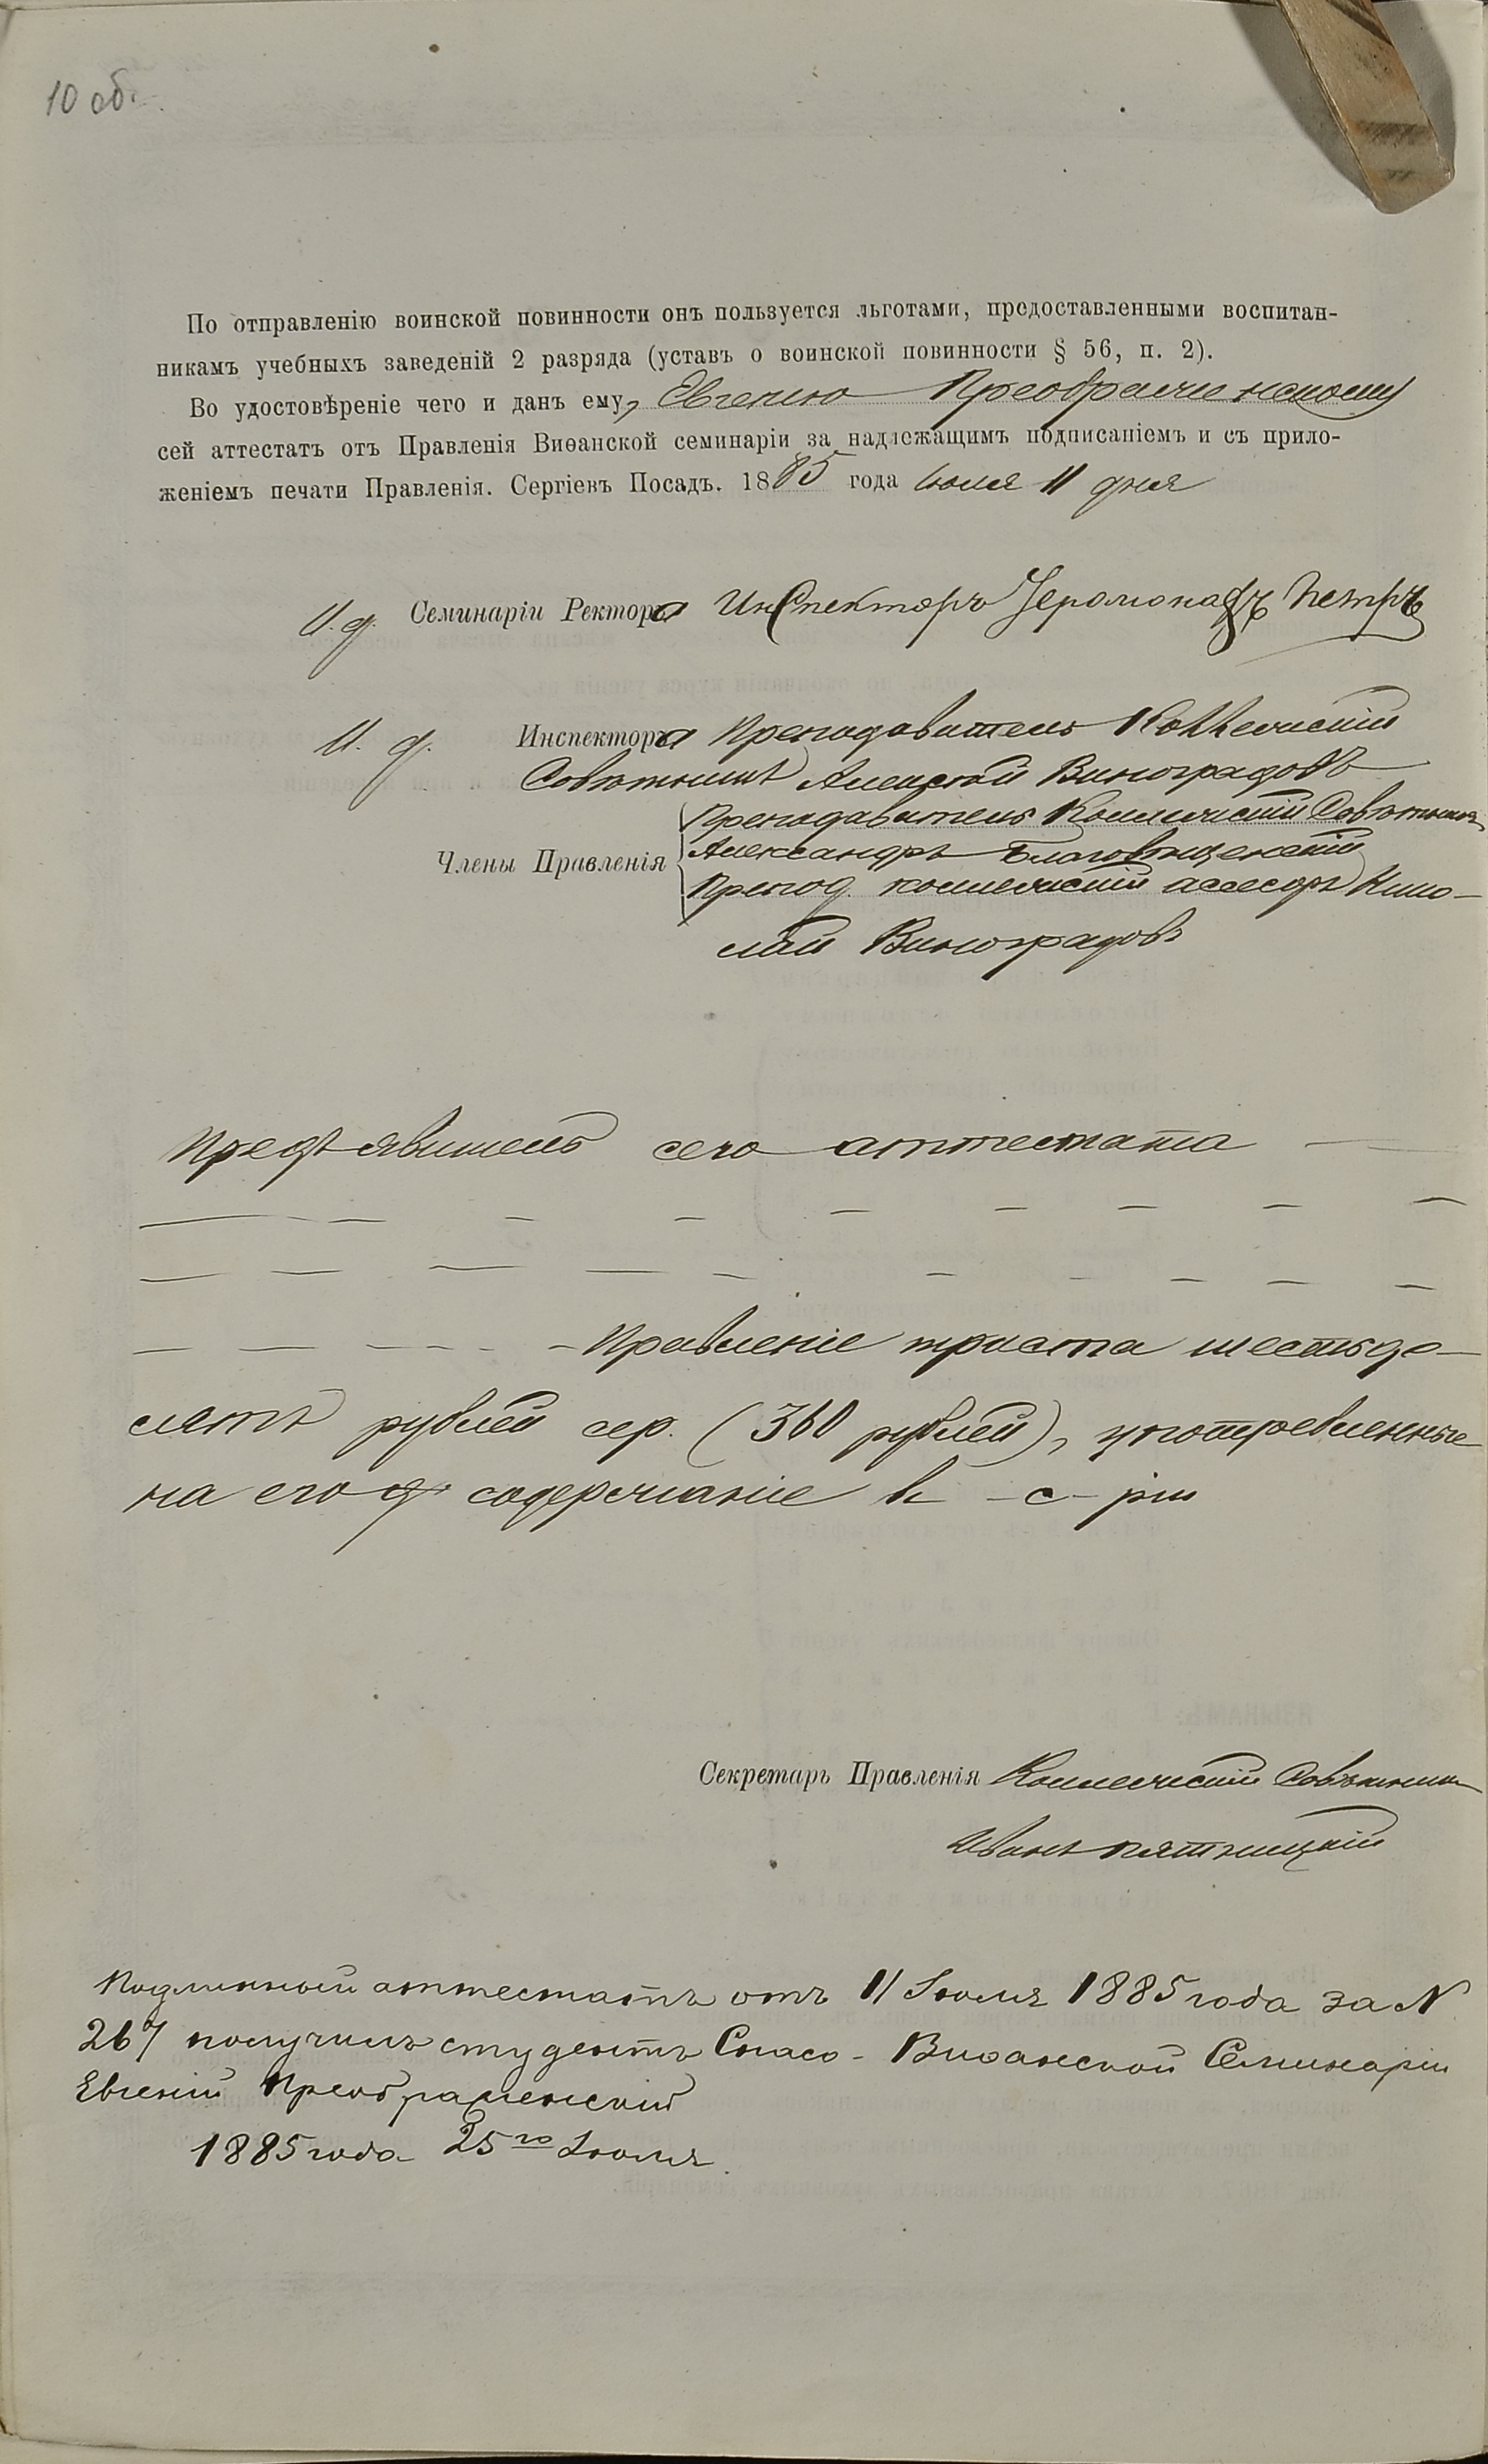 10 об.
По отправленію воинской повинности онъ пользуется льготами, предоставленными воспитан-
никамъ учебныхъ заведеній 2 разряда (уставъ о воинской повинности § 56, п. 2).
Во удостовѣреніе чего и данъ ему, Евгенію Преображенскому
сей аттестатъ отъ Правленія Виѳанской семинаріи за надлежащимъ подписаніемъ и съ прило-
женіемъ печати Правленія. Сергіевъ Посадъ. 1885 года Іюля 11 дня
И. д. Семинаріи Ректора Инспекторъ Іеромонахъ Петръ
И. д. Инспектора Преподаватель Коллежскій
Совѣтникъ Алексѣй Виноградовъ
Преподаватель Коллежскій Совѣтникъ
Члены Правленія Александръ Благовѣщенскій
Препод. коллежскій ассесоръ Нико-
лай Виноградовъ
Предъявитель сего аттестата —
— — — — — — — — —
— — — — — — — — — —
— — — — - - - Правленіе триста шестьде-
сятъ рублей сер. (360 рублей), употребленные
на его содержаніе въ -с- ріи
Секретарь Правленія Коллежскій Совѣтникъ
Иванъ Пятницкій
Подлинный аттестатъ отъ 11 Іюля 1885 года за N
267 получилъ студентъ Спасо-Виѳанской Семинаріи
Евгеній Преображенскій
1885 года 25го Іюля.